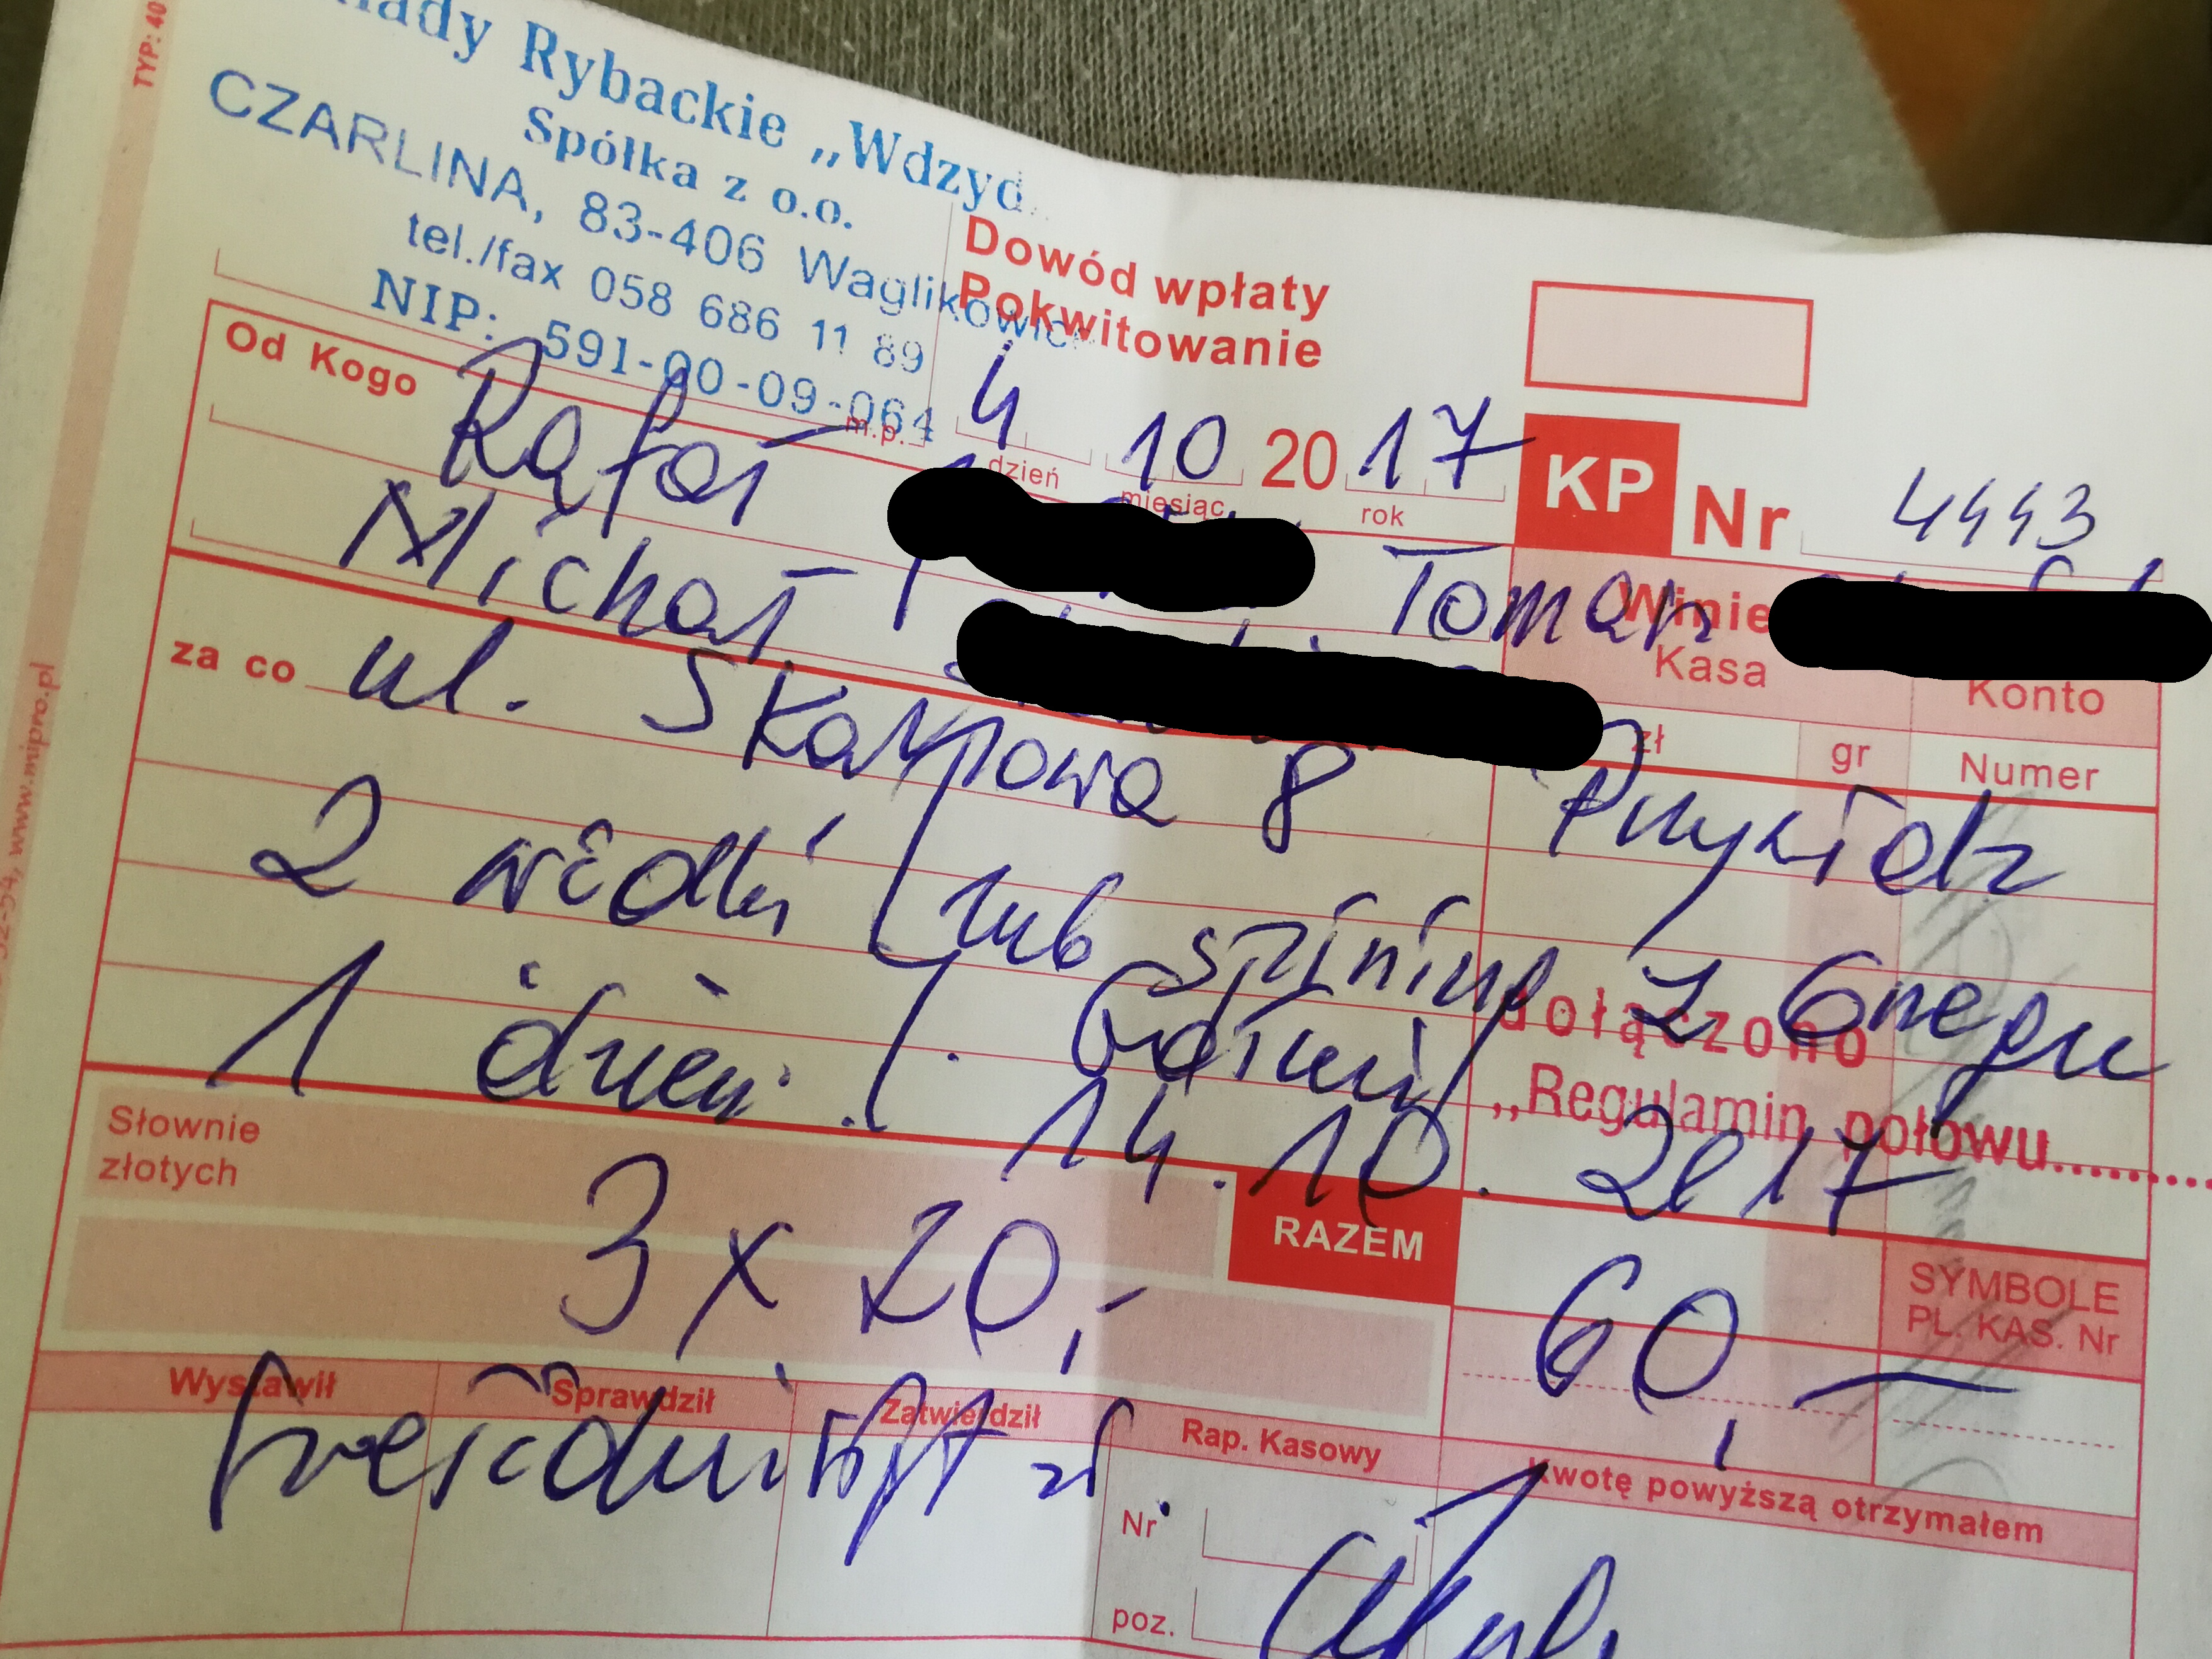 TYP: 40
Rybackie „Wdzyd
Spółka z o.o.
CZARLINA, 83-406 Waglikowic
tel./fax 058 686 11 89
NIP: 591-00-09-064
m.p.
Dowód wpłaty
Pokwitowanie
4 10 2017
dzień miesiąc rok
KP Nr 4443
Od Kogo Rafał
Michał Tomasz
Winie
Kasa Konto
zł gr Numer
za co ul. Skarpowa 8 Przywidz
2 wędki (lub spining z brzegu
1 dzień. (. łodzi)
14.10.2017
dołączono
„Regulamin połowu.......
Słownie
złotych
3 x 20,-
RAZEM 60,-
SYMBOLE
PL. KAS. Nr
Wystawił Sprawdził Zatwierdził Rap. Kasowy Kwotę powyższą otrzymałem
sześćdziesiąt zł
Nr
poz.
www.mipro.pl